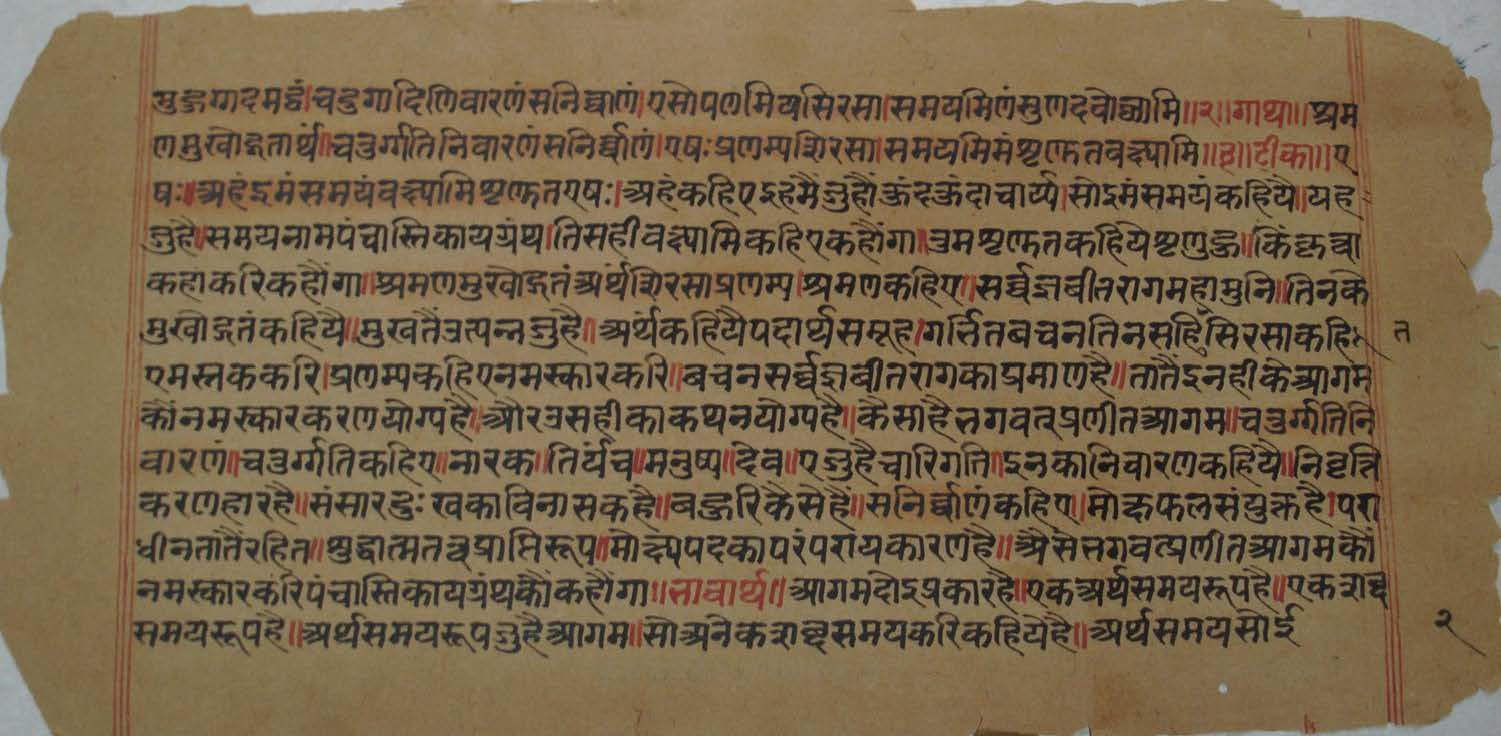 मुहुग्गदमद्वं।चदुगादिणिवारणंसनिव्वाणं।एसोपणमियसिरसा।समयमिणंसुणदवोछामि॥२॥गाथा॥श्रम
णमुखोद्गतार्थं॥चतुर्गतिनिवारणंसनिर्व्वाणं।एषःप्रणम्यशिरसा।समयमिमंशृणुतवक्ष्यामि॥छ॥टीका॥ए
षः॥अहंइमंसमयंवक्ष्यामिशृणुतएषः।अहंकहिएइहमैंजुहौंकुंदकुंदाचार्य्य।सोइमंसमयंकहियै।यह
जुहै॥समयनामपंचास्तिकायग्रंथ।तिसहीवक्ष्यामिकहिएकहौंगा॥तुमशृणुतकहियेशृणुहु॥किंकृत्वा
कहाकरिकहौंगा॥श्रमणमुखोद्गतंअर्थंशिरसाप्रणम्य।श्रमणकहिए॥सर्व्वज्ञवीतरागमहामुनि॥तिनके
मुखोद्गतंकहियै॥मुखतैंउत्पन्नजुहै॥अर्थंकहियैपदार्थसमूह।गर्भितबचनतिनसहिसिरसाकहि
त
एमस्तककरि।प्रणम्यकहिएनमस्कारकरि॥बचनसर्व्वज्ञबीतरागकाप्रमाणहै॥तातैंइनहीकेआगम
कौंनमस्कारकरणयोग्यहै॥औरउसहीकाकथनयोग्यहै॥कैसाहैभगवत्प्रणीतआगम॥चतुर्ग्गतिनि
वारणं॥चतुर्ग्गतिकहिए॥नारक॥तिर्यंच॥मनुष्य॥देव॥एजुहैचारिगति॥इनकानिवारणकहियै॥निवृत्ति
करणहारहै॥संसारदुःखकाविनासकहै॥बहुरिकैसेहै॥सनिर्व्वाणंकहिए।मोक्षफलसंयुक्तहै।परा
धीनतातैंरहित॥शुद्धात्मतत्त्वप्राप्तिरूप॥मोक्ष्यपदकापरंपरायकारणहै॥अैसेभगवत्प्रणीतआगमकौं
नमस्कारकरिपंचास्तिकायग्रंथकौंकहौंगा॥भावार्थ॥आगमदोइप्रकारहै॥एकअर्थसमयरूपहै॥एकशब्द
समयरूपहै॥अर्थसमयरूपजुहैआगम॥सोअनेकशब्दसमयकरिकहियेहै॥अर्थसमयसोई
२